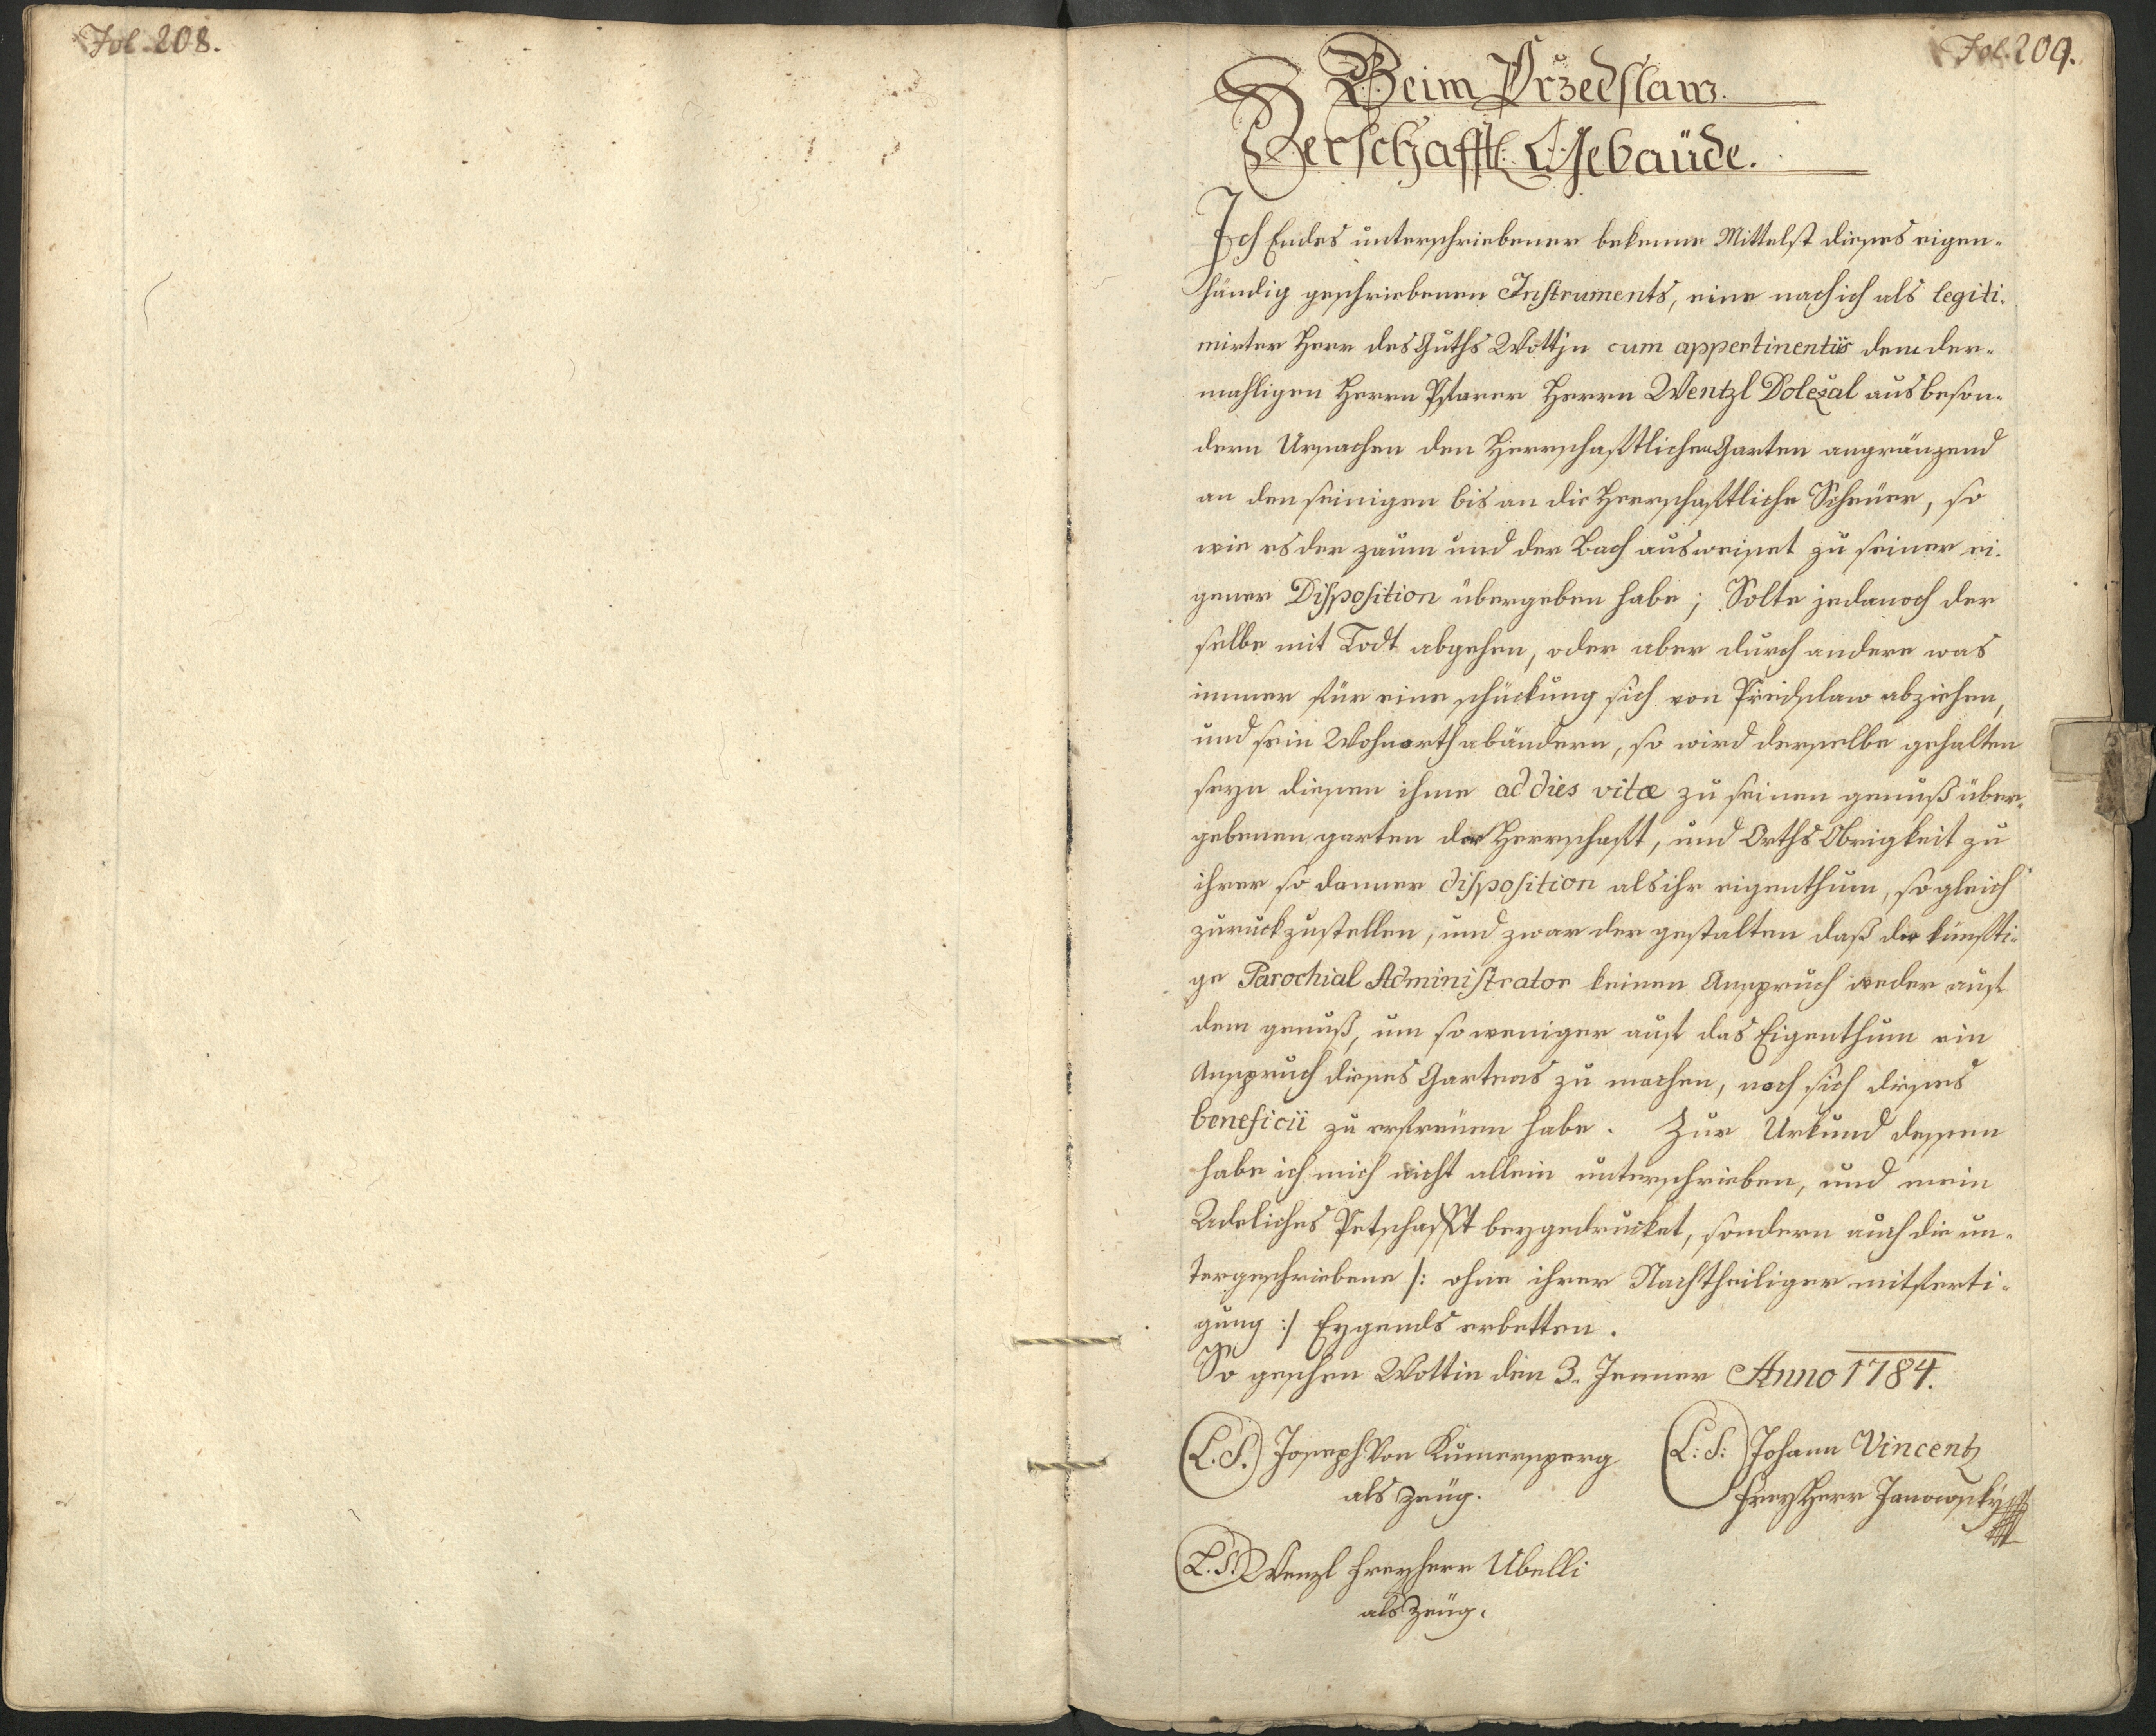 Fol. 208.
Fol. 209.
Beim Przedslaw.
Herschafftl: Gebaüde.
Ich Endes unterschriebener bekenne Mittelst dieses eigen-
händig geschriebenen Instruments, eine nach ich als legiti-
mirter Herr des Guths Wottjn cum appertinentiis dem der-
mahligen Herrn Pfarer Herrn Wentzl Doleżal aus beson-
dern Ursachen den Herrschafftlichen Garten angränzend
an den seinigen bis an die Herrschafftliche Scheüer, so
wie es der zaum und der Bach ausweiset zu seiner ei-
gener Disposition übergeben habe; Solte jedanoch der
selbe mit Todt abgehen, oder aber durch andere was
immer für eine schückung sich von Przidslaw abziehen,
und sein Wohnorth abändern, so wird derselbe gehalten
seyn diesen ihme ad dies vitæ zu seinen genuß über-
gebenen garten der Herrschafft, und Orths Obrigkeit zu
ihrer so danner disposition als ihr eigenthum, so gleich
zuruckzustellen, und zwar der gestalten daß der künfti-
ge Parochial Administrator keinen Anspruch weder auf
dem genuß, um so weniger auf das Eigenthum ein
Anspruch dieses Gartens zu machen, noch sich dieses
beneficii zu erfreüen habe. Zur Urkund dessen
habe ich mich nicht allein unterschrieben, und mein
Adeliches Petschafft beygedrucket, sondern auch die un-
tergeschriebene /: ohne ihrer Nachtheiliger mitferti-
gung :/ Eygends erbetten.
So geschen Wottin den 3. Jenner Anno 1784.
(L.S.) Joseph Von Kumersperg (L:S:) Johann Vincentz
als Zeüg. FreyHerr Janowsky
(L.S.) Wenzl Freyherr Ubelli
als Zeüg.